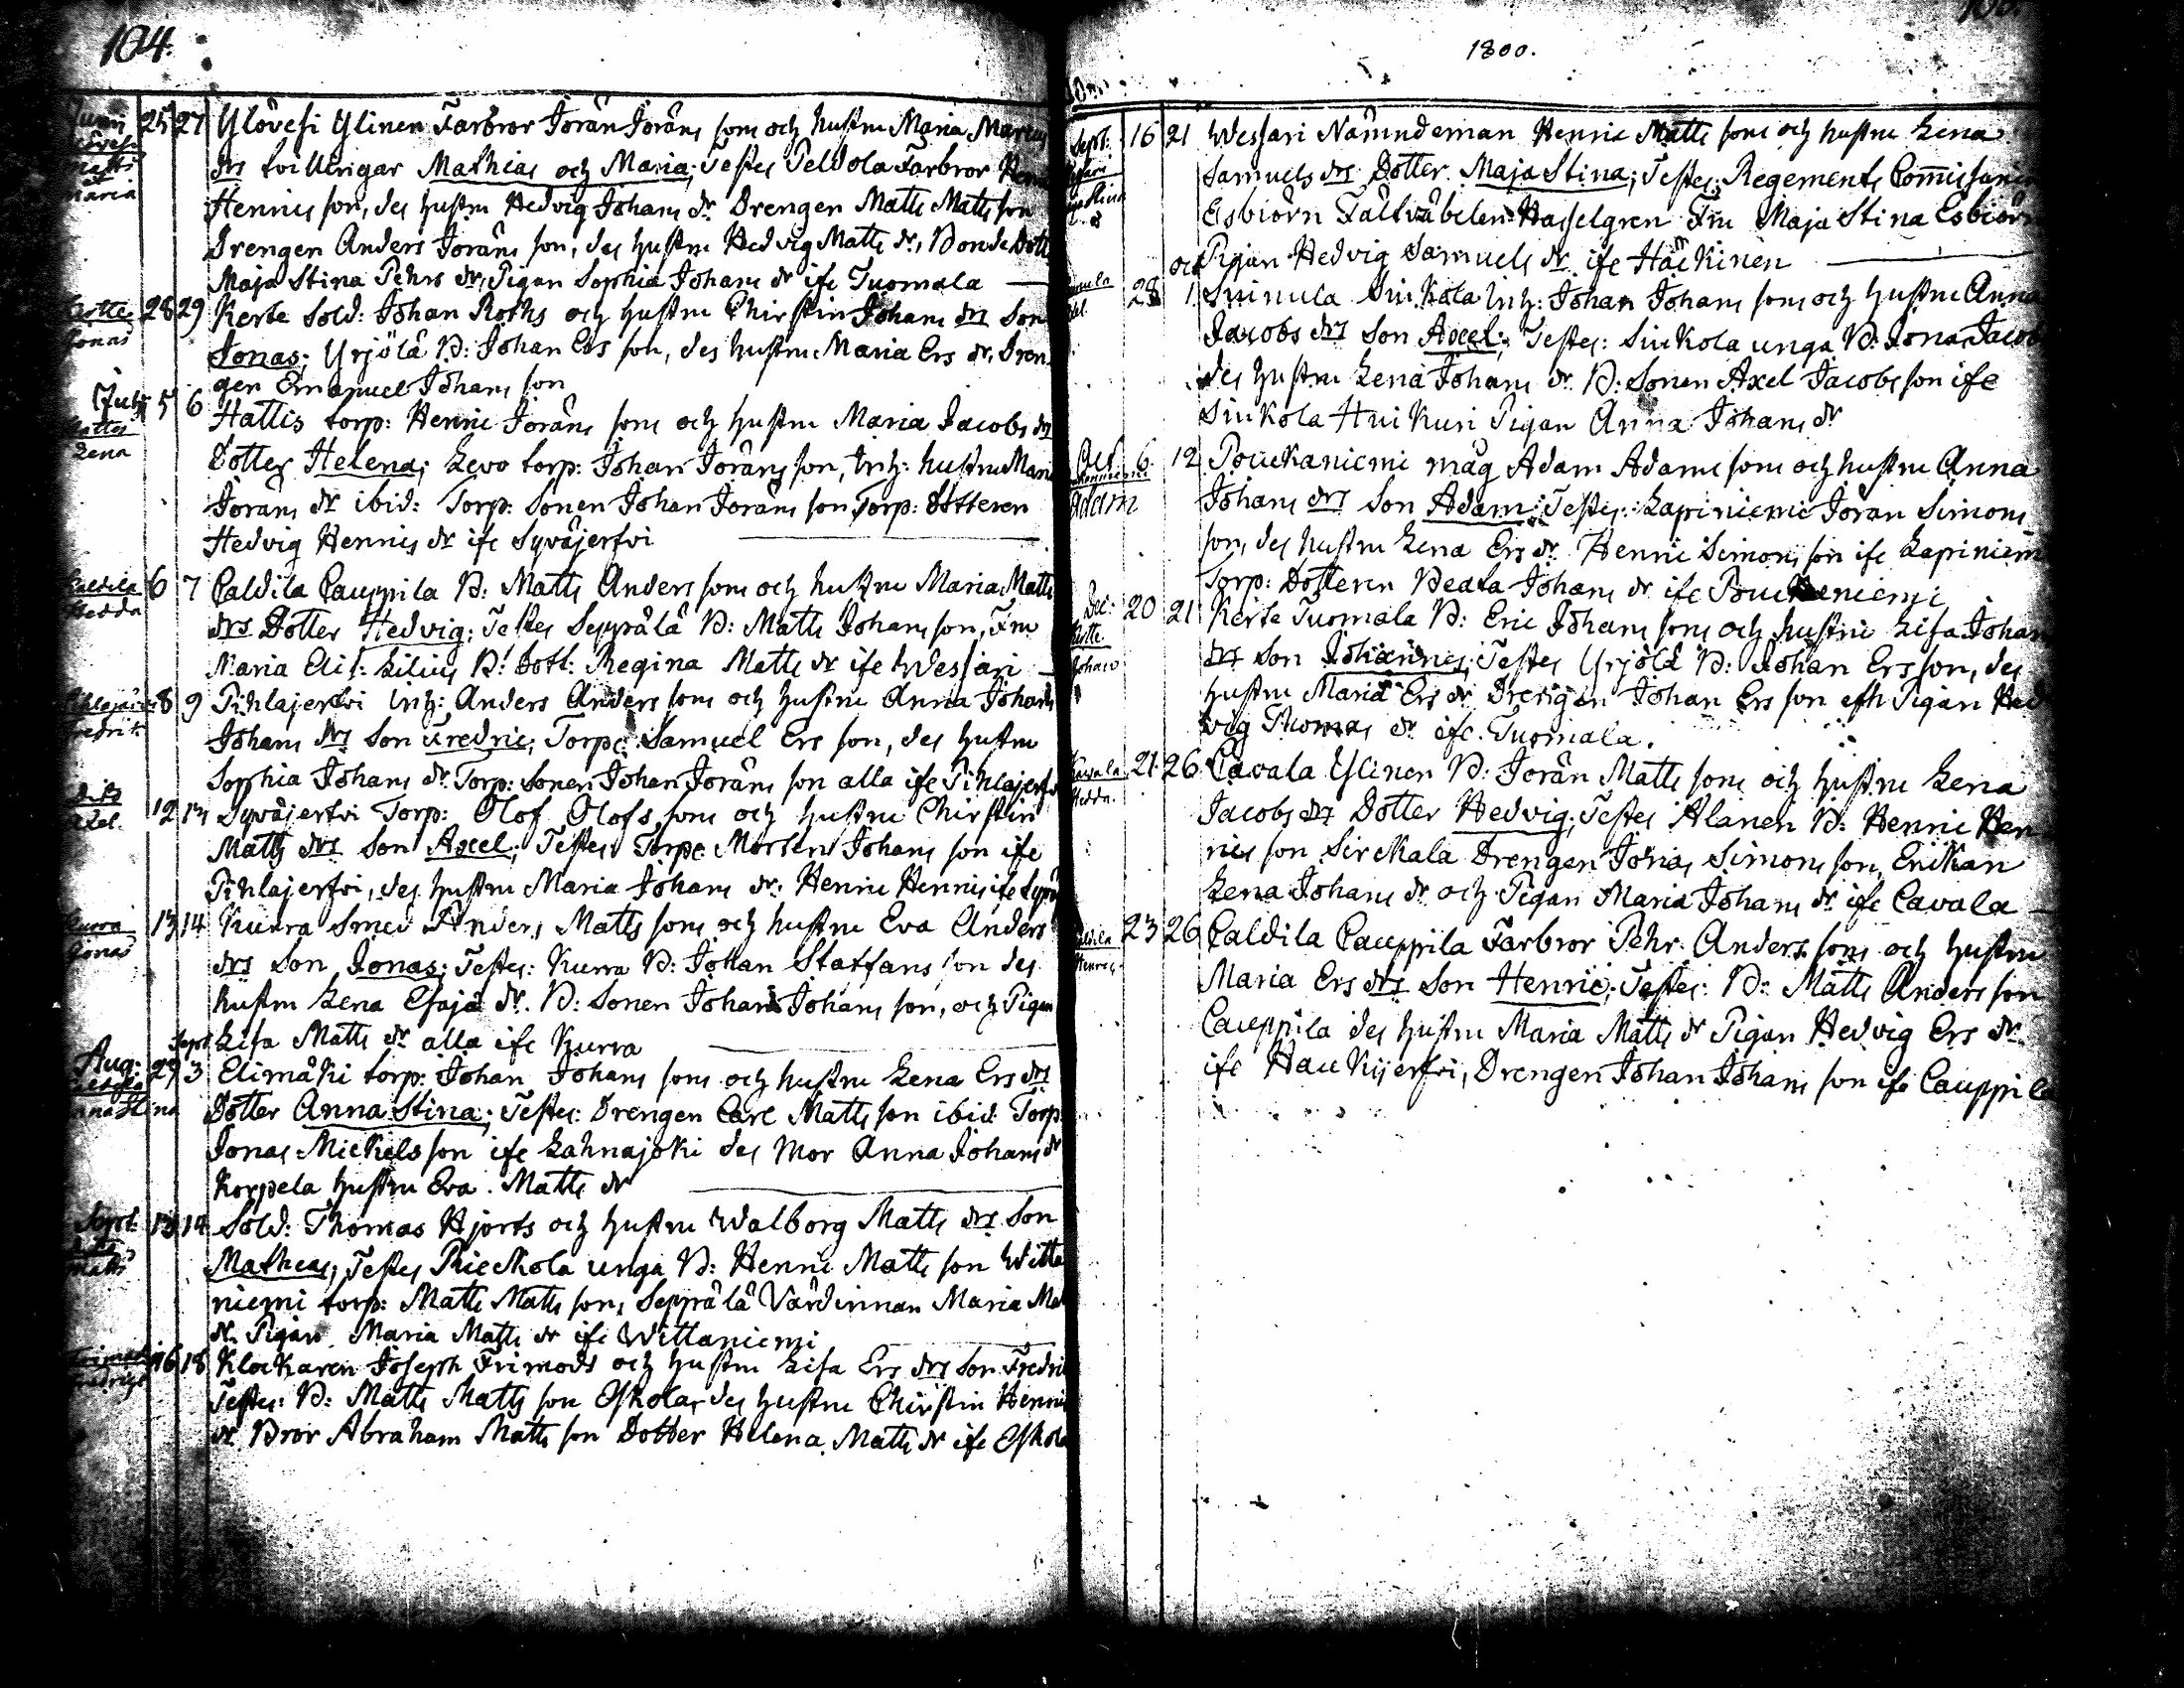 104.
Junii 25 27 Ylövesi Ylinen Farbror Jöran Jörans sons och hustru Maria Marcus
Matts et Maria drs tvillingar Mathias och Maria; Testes Peldola Farbror
Henrics son, des hustru Hedvig Johans dr Drengen Matts Matts son
Drengen Anders Jörans son, des hustru Hedvig Matts dr, Bonde Dott
Maja Stina Pehrs dr, Pigan Sophia Johans dr ifr Tuomala
Kertte 28 29 Kerte Sold: Johan Roths och hustru Chirstin Johans drs Son
Jonas Jonas; Yrjölä B: Johan Ers son, des hustru Maria Ers dr, Dren
gen Emanuel Johans son
July 5 6 Hattis torp: Henric Jörans sons och hustru Maria Jacobs drs
Lena Dotter Helena; Levo torp: Johan Jörans son, Inh: hustru Maria
Jörans dr ibid: Torp: Sonen Johan Jörans son, Torp: Dotteren
Hedvig Henrics dr ifr Syväjerfvi
Caldila 6 7 Caldila Cauppila B: Matts Anders sons och hustru Maria Matts
Hedda drs Dotter Hedvig; Testes Seppälä B: Matts Johans son, Fru
Maria Elis: Lilius B: Dott: Regina Matts dr ifr Wessari
8 9 Pihlajerfvi Inh: Anders Anders sons och hustru Anna Johans
Fredric Johans drs Son Fredric; Torp: Samuel Ers son, des hustru
Sophia Johans dr. Torp: Sonen Johan Jörans son alla ifr Pihlajerfv
Axel. 12 13 Syväjerfvi Torp: Olof Olofs sons och hustru Chirstin
Matts drs Son Axel; Testes Torp: Morten Johans son ifr
Pihlajerfvi, des hustru Maria Johans dr: Henric Henrics ifr Syvä
Kurra 13 14 Kurra Smed Anders Matts sons och hustru Eva Anders
Jonas drs Son Jonas; Testes: Kurra B: Johan Staffans son des
hustru Lena Esajæ dr. B: Sonen Johan Johans son, och Pigan
Lisa Matts dr alla ifr Kurra
Aug: 29 Sept 3 Elimäki torp: Johan Johans sons och hustru Lena Ers drs
Anna Stina Dotter Anna Stina; Testes: Drengen Carl Matts son ibid: Torp:
Jonas Mickels son ifr Lahnajoki des Mor Anna Johans dr
Korpela hustru Eva Matts dr
Sept: 13 14 Sold: Thomas Hjorts och hustru Walborg Matts drs Son
Matts Mathias; Testes Rieckola unga B: Henric Matts son Witta
niemi torp: Matts Matts son, Seppälä Värdinnan Maria Mat
dr. Pigan Maria Matts dr ifr Wittaniemi
16 18 Klockaren Joseph Frimods och hustru Lisa Ers drs Son Fredric
Testes: B: Matts Matts son Eskola, des hustru Chirstin Henrics
dr Bror Abraham Matts son Dotter Helena Matts dr ifr Eskola
1800.
Sept: 16 21 Wessari Nämndeman Henric Matts sons och hustru Lena
Samuels drs Dotter Maja Stina; Testes: Regements Commissarien
Esbiörn Fältväbelen Hasselgren Fru Maja Stina Esbiörn
Pigan Hedvig Samuels dr ifr Häckinen
28 Oct 1 Sinkola Inh: Johan Johans sons och hustru Anna
Jacobs drs Son Axel; Testes: Sinkola unga B: Jonas Jacobs
des hustru Lena Johans dr. B: Sonen Axel Jacobs son ifr
Sinkola Huikuri Pigan Anna Johans dr
Oct 6 12 Pouckaniemi måg Adam Adams sons och hustru Anna
Adam Johans drs Son Adam; Testes: Lapiniemi Jöran Simons
son, des hustru Lena Ers dr. Henric Simons son ifr Lapiniemi
Torp: Dotteren Beata Johans dr ifr Pouckaniemi
Dec: 20 21 Kerte Tuomala B: Eric Johans sons och hustru Lisa Johans
Kertte Johan drs Son Johannes; Testes Yrjölä B: Johan Ers son, des
hustru Maria Ers dr Drengen Johan Ers son och Pigan Hed
vig Thomas dr ifr Tuomala.
Kavala 21 26 Cavala Ylinen B: Jöran Matts sons och hustru Lena
Hedda. Jacobs drs Dotter Hedvig; Testes Alanen B: Henric Hen
rics son Sirckala Drengen Jonas Simons son, Enckan
Lena Johans dr och Pigan Maria Johans dr ifr Cavala
Caldila 23 26 Caldila Cauppila Farbror Pehr Anders sons och hustru
Henric. Maria Ers drs Son Henric; Testes: B: Matts Anders son
Cauppila des hustru Maria Matts dr Pigan Hedvig Ers dr
ifr Haukijerfvi, Drengen Johan Johans son ifr Cauppila